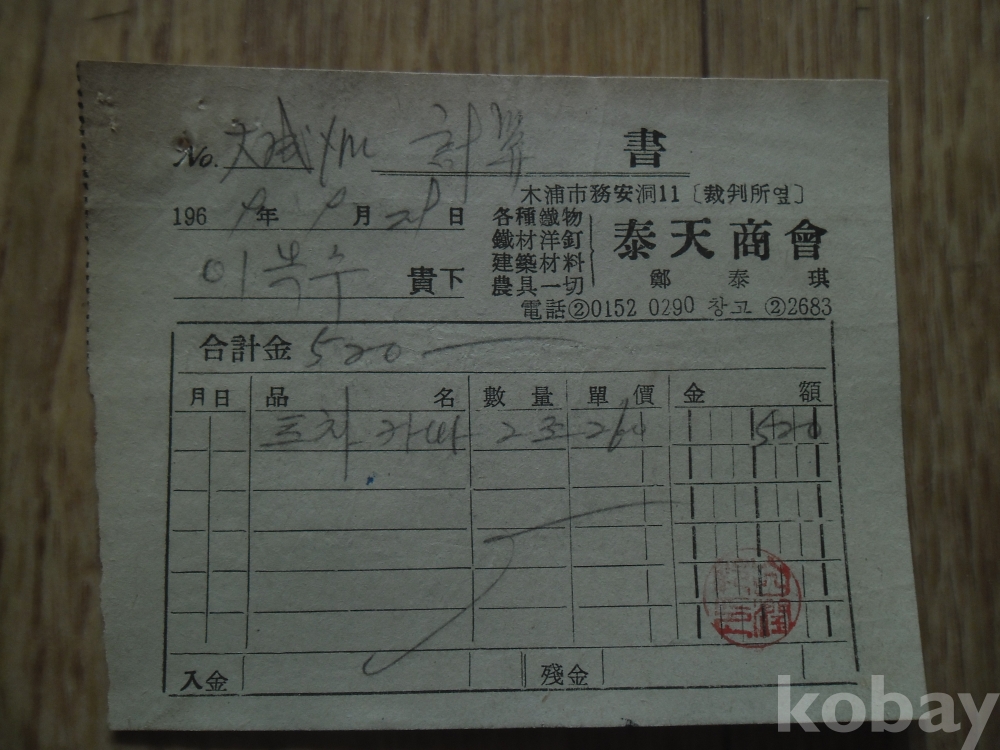 No. 計算 書
木浦市務安洞11〔裁判所옆〕
1969年 9月 28日
各種鐵物
鐵材洋釘
建築材料
農具一切
泰天商會
鄭泰琪
이복수 貴下
電話②0152 0290 창고 ②2683
合計金 520
月日 品名 數量 單價 金額
2조 260 520
入金 殘金
kobay